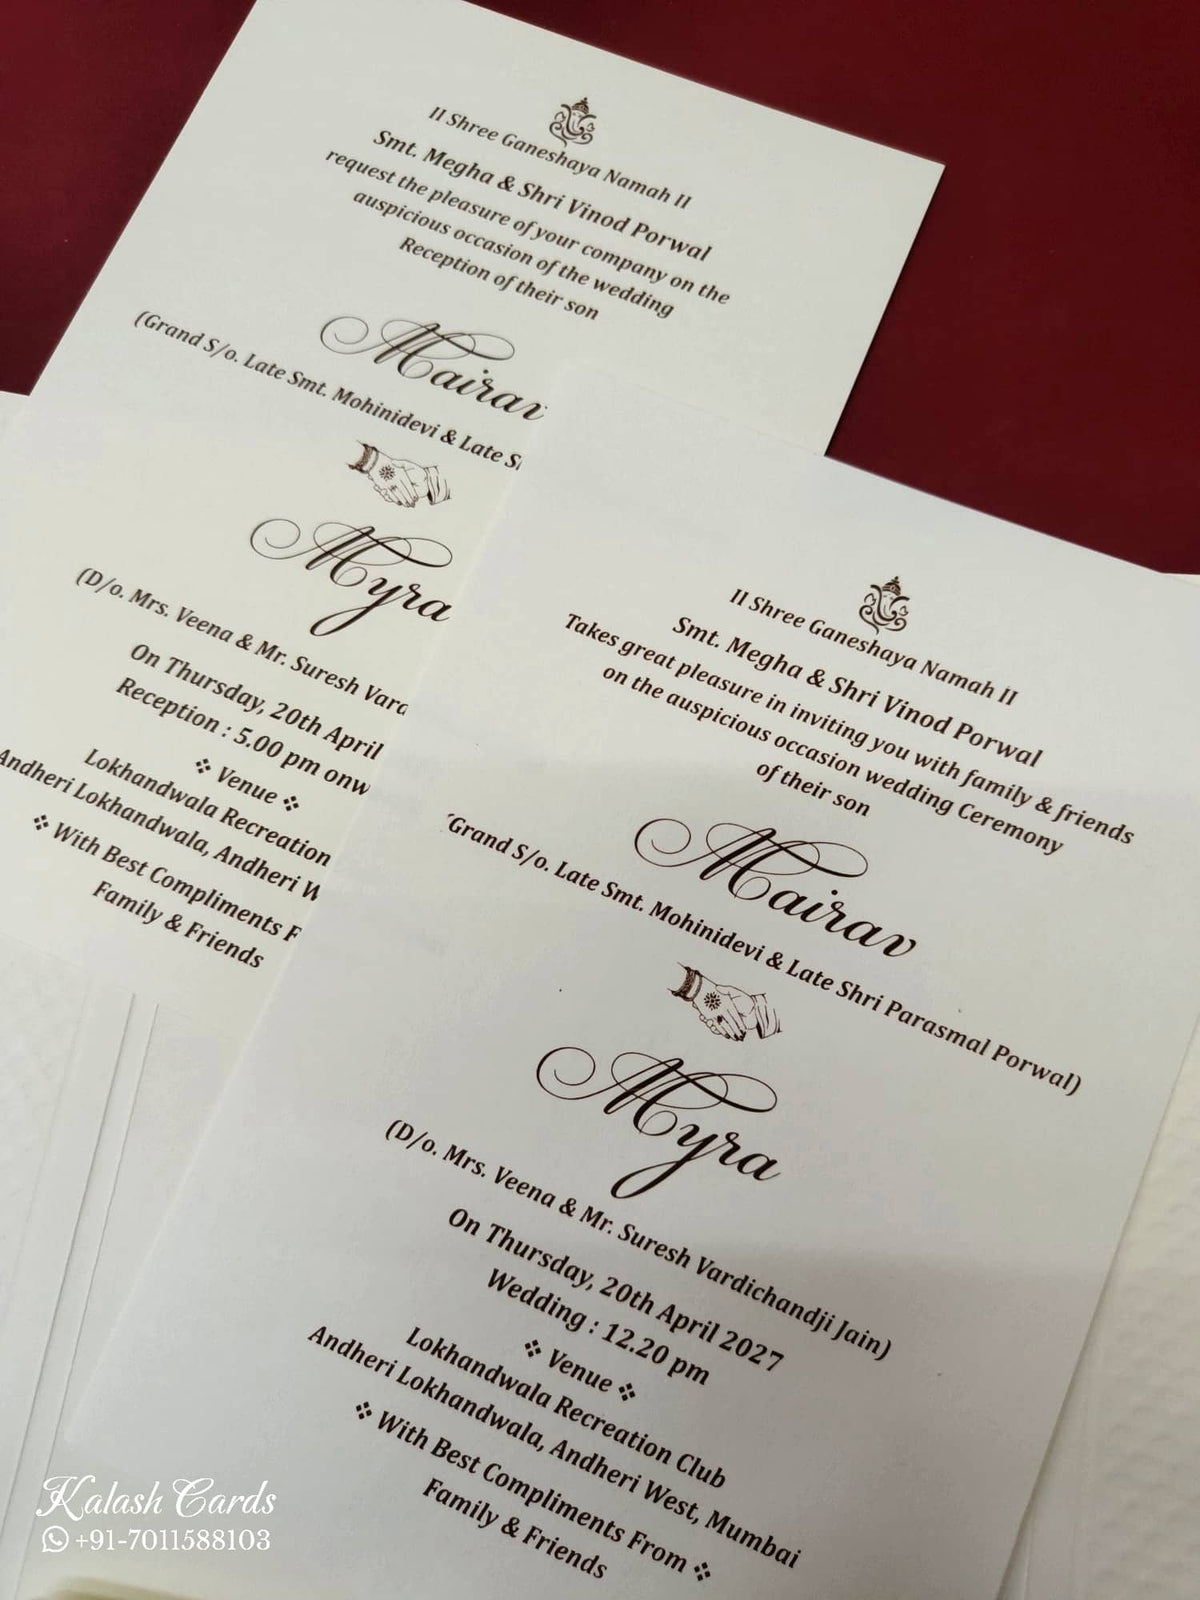 II Shree Ganeshaya Namah II
Smt. Megha & Shri Vinod Porwal
request the pleasure of your company on the
auspicious occasion of the wedding
Reception of their son
Mairav
(Grand S/o. Late Smt. Mohinidevi & Late
Myra
(D/o. Mrs. Veena & Mr. Suresh
On Thursday, 20th April
Reception : 5.00 pm
Venue
Lokhandwala Recreation
Andheri Lokhandwala, Andheri
With Best Compliments
Family & Friends
II Shree Ganeshaya Namah II
Smt. Megha & Shri Vinod Porwal
Takes great pleasure in inviting you with family & friends
on the auspicious occasion wedding Ceremony
of their son
Mairav
Grand S/o. Late Smt. Mohinidevi & Late Shri Parasmal Porwal)
Myra
(D/o. Mrs. Veena & Mr. Suresh Vardichandji Jain)
On Thursday, 20th April 2027
Wedding : 12.20 pm
Venue
Lokhandwala Recreation Club
Andheri Lokhandwala, Andheri West, Mumbai
With Best Compliments From
Family & Friends
Kalash Cards
+91-7011588103